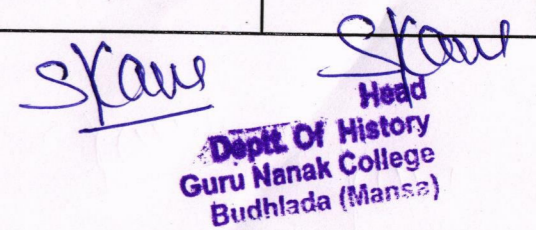 SKaur SKaur
Head
Deptt. Of History
Guru Nanak College
Budhlada (Mansa)